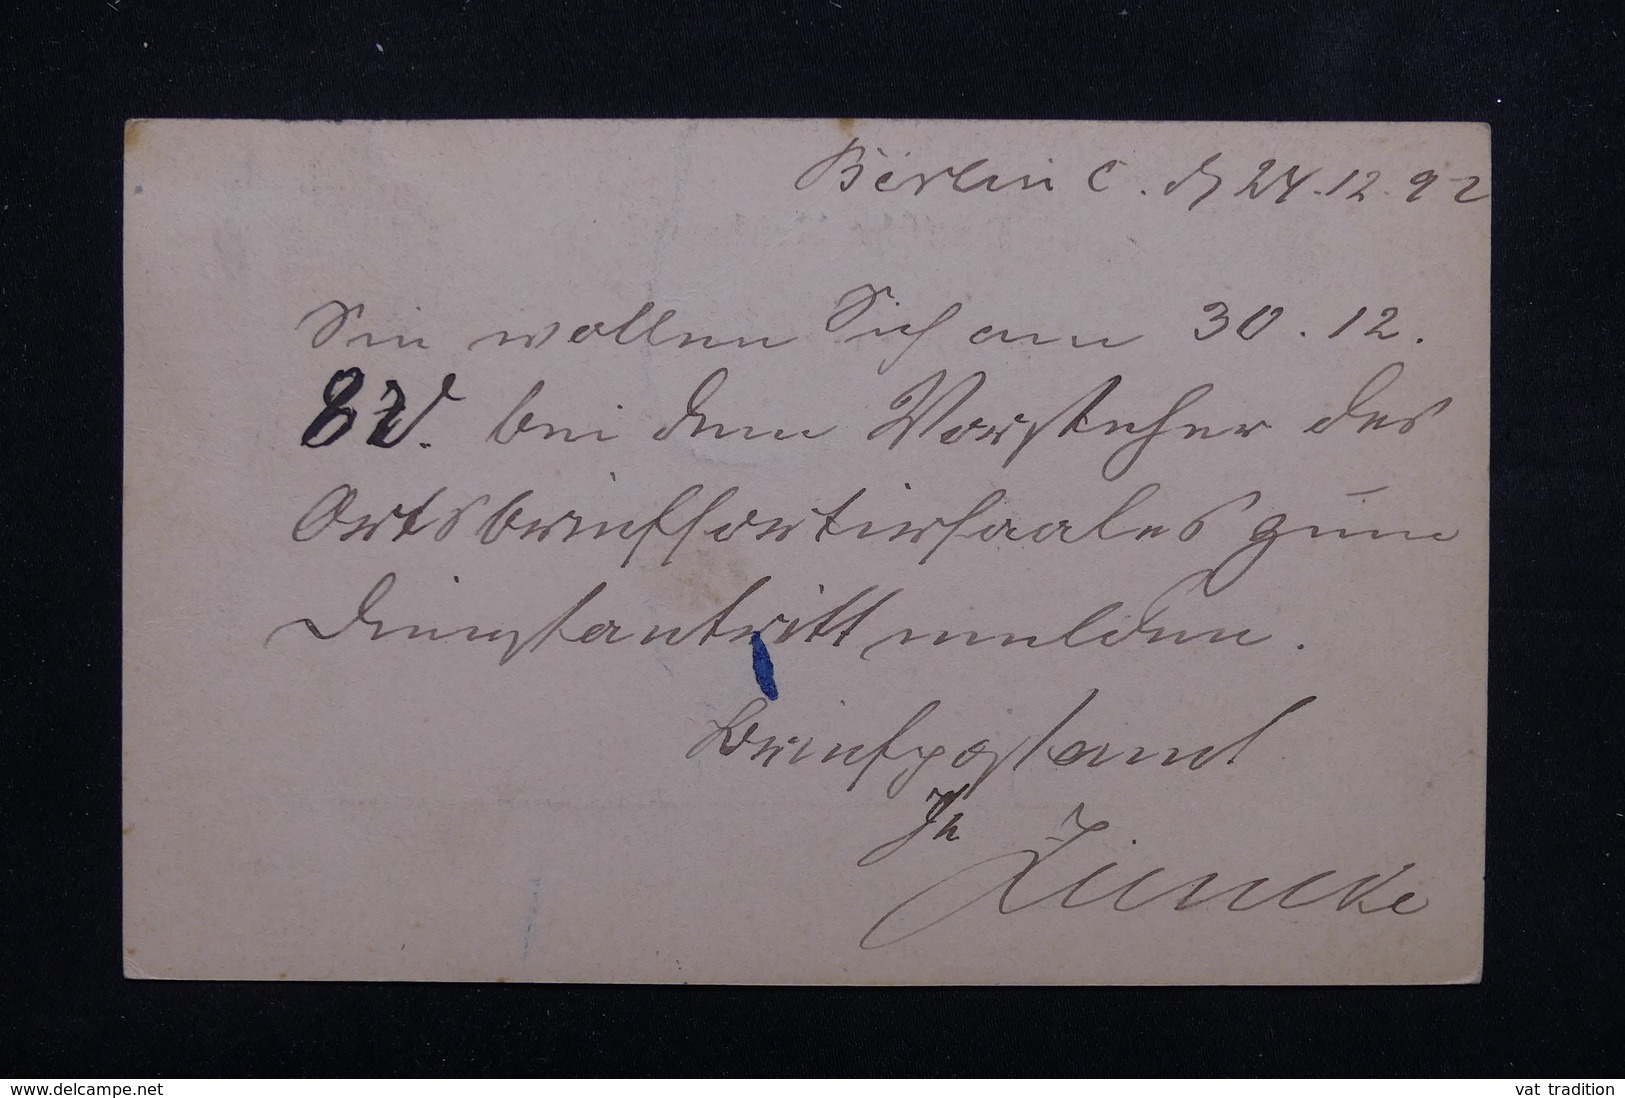 Berlin C. d 24.12.92
Sie wollen Sich am 30.12.
8 V. bei dem Vorsteher des
Ortsbriefsortirsaales zum
Dienstantritt melden.
Briefpostamt
Ziencke
www.delcampe.net
vat tradition